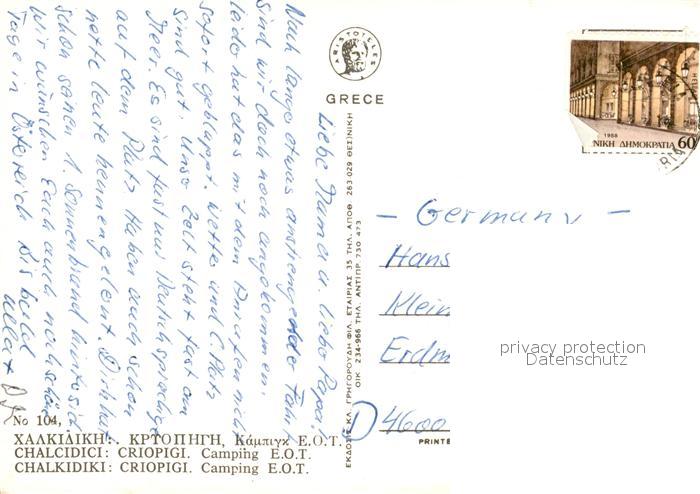 Liebe Mama u. lieber Papa!
Nach lange etwas anstrengender Fahrt
sind wir doch noch angekommen.
leider hat das mit dem Anrufen nicht
sofort geklappt. Wetter und C. Platz
sind gut. Unser Zelt steht fast am
Meer. Es sind fast nur Deutschsprachige
auf dem Platz. Haben auch schon
nette Leute kennengelernt. Dirk hat
schon seinen 1. Sonnenbrand hinter sich
Wir wünschen Euch auch noch schöne
Tage in Österreich Bis bald
ARISTOTELES
GRECE
1988
ΝΙΚΗ ΔΗΜΟΚΡΑΤΙΑ 60
- Germany -
Hans
Klein
Erdm
D 4600
privacy protection
Datenschutz
PRINTE
ΕΚΔΟΣΙΣ ΚΛ. ΓΡΗΓΟΡΟΥΔΗ ΦΙΛ. ΕΤΑΙΡΙΑΣ 35 ΤΗΛ. ΑΠΟΘ. 263 029 ΘΕΣ/ΝΙΚΗ
ΟΙΚ 234-966 ΤΗΛ. ΑΝΤΙΠΡ. 730 473
No 104,
ΧΑΛΚΙΔΙΚΗ: ΚΡΤΟΠΗΓΗ, Κάμπιγκ Ε.Ο.Τ.
CHALCIDICI: CRIOPIGI. Camping E.O.T.
CHALKIDIKI: CRIOPIGI. Camping E.O.T.